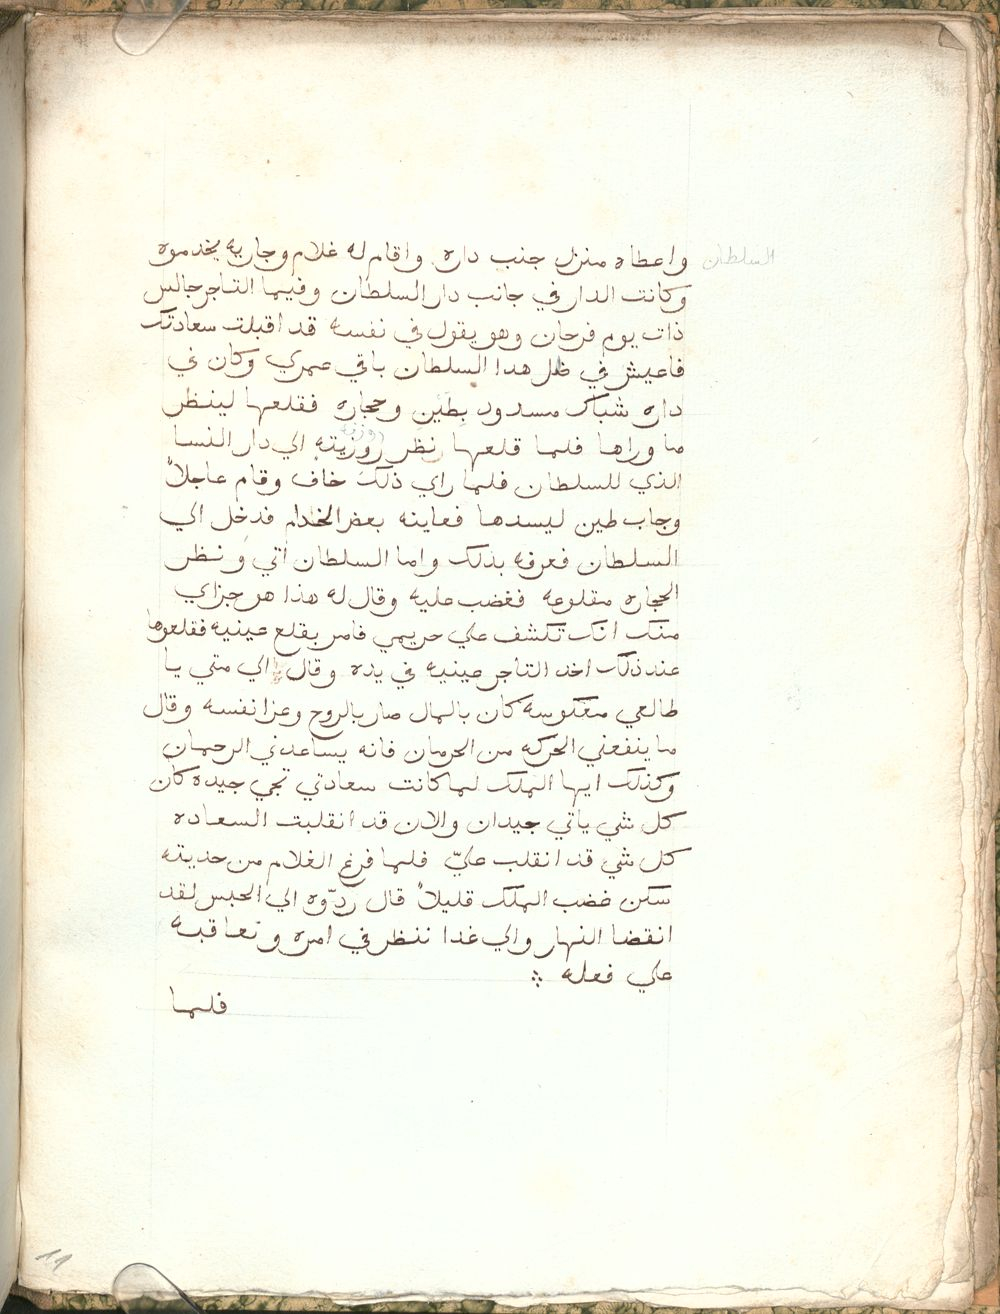 السلطان
واعطاه منزل جنب داره واقام له غلام وجاريه يخدموه
وكانت الدار في جانب دار السلطان وفيما التاجر جالس
ذات يوم فرحان وهو يقول في نفسه قد اقبلت سعادتك
فاعيش في ظل هدا السلطان باقي عمري وكان في
داره شباك مسدود بطين وحجاره فقلعها لينظر
ما وراها فلما قلعها نظر روزيته الي دار النسا
روزنه
الذي للسلطان فلما راي ذلك خاف وقام عاجلاً
وجاب طين ليسدها فعاينه بعض الخدام فدخل الي
السلطان فعرفه بذلك واما السلطان اتي ونظر
الحجاره مقلوعه فغضب عليه وقال له هذا هو جزاي
منك انك تكشف علي حريمي فامر بقلع عينيه فقلعوها
عند ذلك اخد التاجر عينيه في يده وقال الي متي يا
طالعي معكوسه كان بالمال صار بالروح وعزا نفسه وقال
ما ينفعني الحركه من الحرمان فانه يساعدني الرحمان
وكذلك ايها الملك لما كانت سعادتي تجي جيده كان
كل شي ياتي جيدان والان قد انقلبت السعاده
كل شي قد انقلب عليّ فلما فرغ الغلام من حديته
سكن غضب الملك قليلاً قال ردّوه الي الحبس لقد
انقضا النهار والي غدا ننظر في امره ونعاقبه
علي فعله
فلما
11